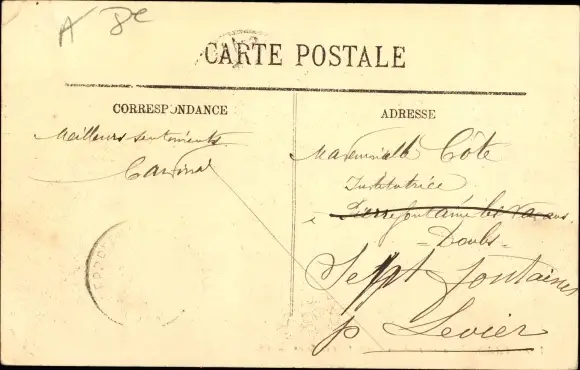 A 8c
CARTE POSTALE
CORRESPONDANCE
Meilleurs sentiments
Cardinal
ADRESSE
Mademoiselle Côte
Institutrice
à Pierrefontaine les Varans
- Doubs -
Sept fontaines
p Levier